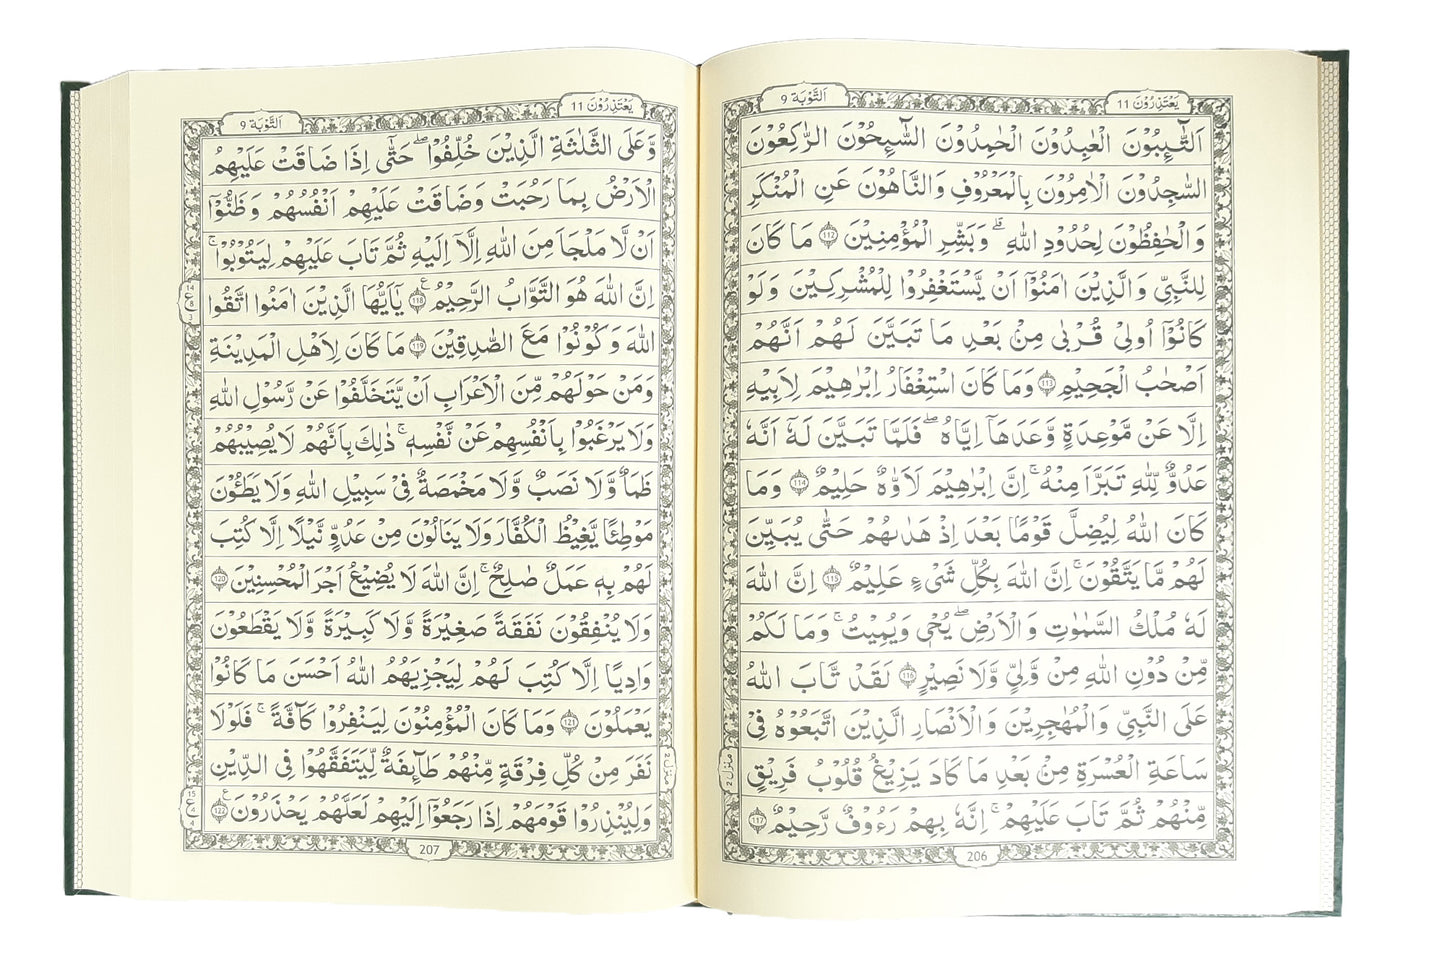 اَلتَّوْبَة 9
يَعْتَذِرُوْنَ 11
اَلتَّآىِٕبُوْنَ الْعٰبِدُوْنَ الْحٰمِدُوْنَ السَّآىِٕحُوْنَ الرّٰكِعُوْنَ
السّٰجِدُوْنَ الْاٰمِرُوْنَ بِالْمَعْرُوْفِ وَالنَّاهُوْنَ عَنِ الْمُنْكَرِ
وَالْحٰفِظُوْنَ لِحُدُوْدِ اللّٰهِ ؕ وَبَشِّرِ الْمُؤْمِنِيْنَ 112 مَا كَانَ
لِلنَّبِيِّ وَالَّذِيْنَ اٰمَنُوْۤا اَنْ يَّسْتَغْفِرُوْا لِلْمُشْرِكِيْنَ وَلَوْ
كَانُوْۤا اُولِيْ قُرْبٰى مِنْۢ بَعْدِ مَا تَبَيَّنَ لَهُمْ اَنَّهُمْ
اَصْحٰبُ الْجَحِيْمِ 113 وَمَا كَانَ اسْتِغْفَارُ اِبْرٰهِيْمَ لِاَبِيْهِ
اِلَّا عَنْ مَّوْعِدَةٍ وَّعَدَهَاۤ اِيَّاهُ ۖ فَلَمَّا تَبَيَّنَ لَهٗۤ اَنَّهٗ
عَدُوٌّ لِّلّٰهِ تَبَرَّاَ مِنْهُ ؕ اِنَّ اِبْرٰهِيْمَ لَاَوَّاهٌ حَلِيْمٌ 114 وَمَا
كَانَ اللّٰهُ لِيُضِلَّ قَوْمًۢا بَعْدَ اِذْ هَدٰىهُمْ حَتّٰى يُبَيِّنَ
لَهُمْ مَّا يَتَّقُوْنَ ؕ اِنَّ اللّٰهَ بِكُلِّ شَيْءٍ عَلِيْمٌ 115 اِنَّ اللّٰهَ
لَهٗ مُلْكُ السَّمٰوٰتِ وَالْاَرْضِ ؕ يُحْيٖ وَيُمِيْتُ ؕ وَمَا لَكُمْ
مِّنْ دُوْنِ اللّٰهِ مِنْ وَّلِيٍّ وَّلَا نَصِيْرٍ 116 لَقَدْ تَّابَ اللّٰهُ
عَلَى النَّبِيِّ وَالْمُهٰجِرِيْنَ وَالْاَنْصَارِ الَّذِيْنَ اتَّبَعُوْهُ فِيْ
سَاعَةِ الْعُسْرَةِ مِنْۢ بَعْدِ مَا كَادَ يَزِيْغُ قُلُوْبُ فَرِيْقٍ
مِّنْهُمْ ثُمَّ تَابَ عَلَيْهِمْ ؕ اِنَّهٗ بِهِمْ رَءُوْفٌ رَّحِيْمٌ 117
منزل 2
206
اَلتَّوْبَة 9
يَعْتَذِرُوْنَ 11
وَّعَلَى الثَّلٰثَةِ الَّذِيْنَ خُلِّفُوْا ؕ حَتّٰۤى اِذَا ضَاقَتْ عَلَيْهِمُ
الْاَرْضُ بِمَا رَحُبَتْ وَضَاقَتْ عَلَيْهِمْ اَنْفُسُهُمْ وَظَنُّوْۤا
اَنْ لَّا مَلْجَاَ مِنَ اللّٰهِ اِلَّاۤ اِلَيْهِ ثُمَّ تَابَ عَلَيْهِمْ لِيَتُوْبُوْا ؕ
اِنَّ اللّٰهَ هُوَ التَّوَّابُ الرَّحِيْمُ 118 يٰۤاَيُّهَا الَّذِيْنَ اٰمَنُوا اتَّقُوا
اللّٰهَ وَكُوْنُوْا مَعَ الصّٰدِقِيْنَ 119 مَا كَانَ لِاَهْلِ الْمَدِيْنَةِ
وَمَنْ حَوْلَهُمْ مِّنَ الْاَعْرَابِ اَنْ يَّتَخَلَّفُوْا عَنْ رَّسُوْلِ اللّٰهِ
وَلَا يَرْغَبُوْا بِاَنْفُسِهِمْ عَنْ نَّفْسِهٖ ؕ ذٰلِكَ بِاَنَّهُمْ لَا يُصِيْبُهُمْ
ظَمَاٌ وَّلَا نَصَبٌ وَّلَا مَخْمَصَةٌ فِيْ سَبِيْلِ اللّٰهِ وَلَا يَطَـُٔوْنَ
مَوْطِئًا يَّغِيْظُ الْكُفَّارَ وَلَا يَنَالُوْنَ مِنْ عَدُوٍّ نَّيْلًا اِلَّا كُتِبَ
لَهُمْ بِهٖ عَمَلٌ صَالِحٌ ؕ اِنَّ اللّٰهَ لَا يُضِيْعُ اَجْرَ الْمُحْسِنِيْنَ 120
وَلَا يُنْفِقُوْنَ نَفَقَةً صَغِيْرَةً وَّلَا كَبِيْرَةً وَّلَا يَقْطَعُوْنَ
وَادِيًا اِلَّا كُتِبَ لَهُمْ لِيَجْزِيَهُمُ اللّٰهُ اَحْسَنَ مَا كَانُوْا
يَعْمَلُوْنَ 121 وَمَا كَانَ الْمُؤْمِنُوْنَ لِيَنْفِرُوْا كَآفَّةً ؕ فَلَوْلَا
نَفَرَ مِنْ كُلِّ فِرْقَةٍ مِّنْهُمْ طَآىِٕفَةٌ لِّيَتَفَقَّهُوْا فِي الدِّيْنِ
وَلِيُنْذِرُوْا قَوْمَهُمْ اِذَا رَجَعُوْۤا اِلَيْهِمْ لَعَلَّهُمْ يَحْذَرُوْنَ 122
منزل 2
207